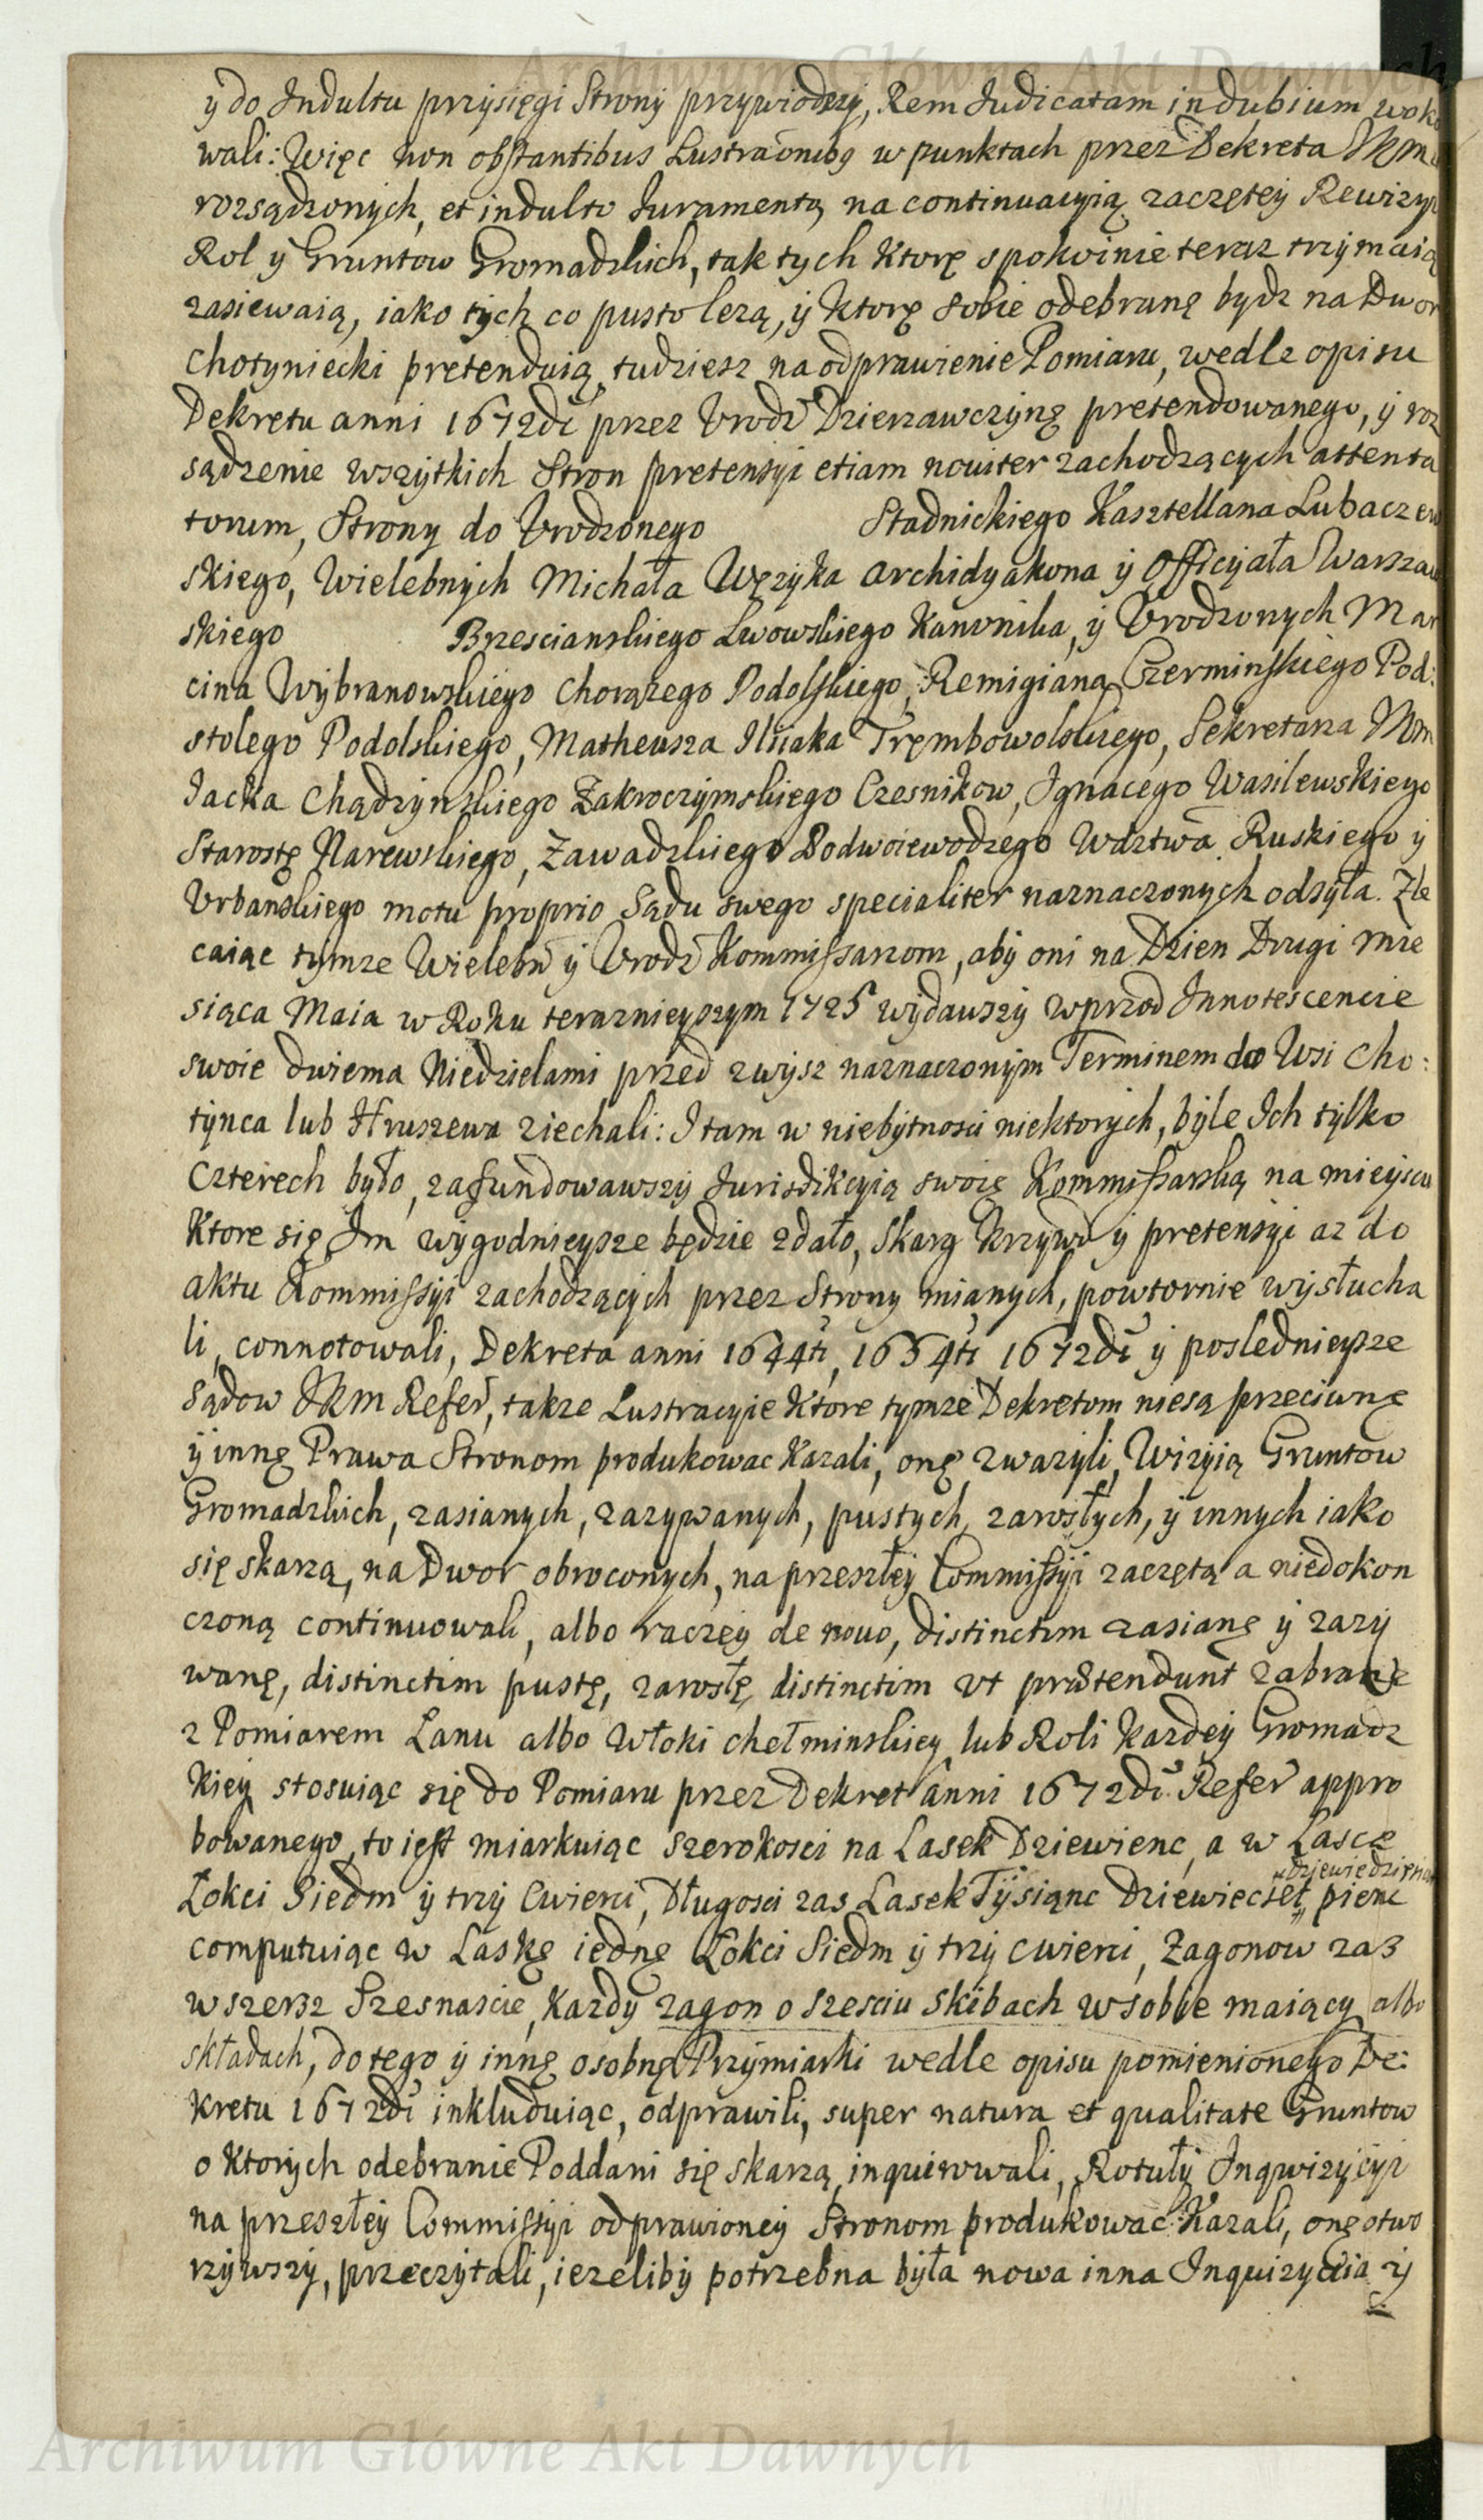 Archiwum Główne Akt Dawnych
y do Indultu przysięgi Strony przywiodszy, Rem Judicatam in dubium woko
wali: Więc non obstantibus Lustraõnibq w punktach przez Dekreta JKM
rozsądzonych, et indulto Juramento, na continuacyią zaczętey Rewizyi
Rol y Gruntow Gromadzkich, tak tych Ktorę spokoinie teraz trzymaią
zasiewaią, iako tych co pusto lezą, y Ktorę sobie odebranę bydz na Dwor
Chotyniecki pretenduią, tudziesz na odprawienie Pomiaru, wedle opisu
Dekretu anni 1672di przez Vrodz Dzierzawczynę pretendowanego, y roz
sądzenie wszytkich Stron pretensyi etiam noviter zachodzących attenta
torum, Strony do Vrodzonego Stadnickiego Kasztellana Lubaczew
skiego, Wielebnych Michała Węzyka Archidyakona y Officyała Warszaw
skiego Brzescianskiego Lwowskiego Kanonika, y Vrodzonych Mar
cina Wybranowskiego Chorązego Podolskiego, Remigiana Czerminskiego Pod:
stolego Podolskiego, Matheusza Iliiaka Trębowolskiego, Sekretarza JKM
Jacka Chądzynskiego Zakroczymskiego Czesnikow, Ignacego Wasilewskiego
Starostę Narewskiego, Zawadzkiego Podwoiewodzego Wdztwa Ruskiego y
Vrbanskiego motu proprio Sądu swego specialiter naznaczonych odsyła. Zle
caiąc tymze Wielebn y Vrodz Kommissarzom, aby oni na Dzien Drugi Mie
siąca Maia w Roku terazniejszym 1725 wydawszy wprzod Innotescencie
swoie dwiema Niedzielami przed zwysz naznaczonym Terminem do Wsi Cho:
tynca lub Hruszewa ziechali: I tam w niebytnosci niektorych, byle Ich tylko
Czterech było, zafundowawszy Jurisdikcyią swoię Kommissarską na mieyscu
Ktore się Im wygodnieysze będzie zdało, Skarg Krzywd y pretensyi az do
aktu Kommissyi zachodzących przez Strony mianych, powtornie wysłucha
li, connotowali, Dekreta anni 1644ti, 1654ti 1672di y poslednieysze
Sądow JKM Refer, takze Lustracyie Ktore tymze Dekretom niesą przeciwnę
y innę Prawa Stronom produkowac Kazali, onę zwazyli, Wizyią Gruntow
Gromadzkich, zasianych, zazywanych, pustych, zarosłych, y innych iako
się skarzą, na Dwor obroconych, na przeszłey Commissyi zaczętą a niedokon
czoną continuowali, albo raczey de novo, distinctim zasianę y zazy
wanę, distinctim pustę, zarosłę, distinctim vt prætendunt zabranę
z Pomiarem Lanu albo Włoki chełminskiey lub Roli Kazdey Gromadz
Kiey stosuiąc się do Pomiaru przez Dekret anni 1672di Refer appro
bowanego, to iest miarkuiąc szerokosci na Lasek Dziewienc, a w Lascę
Łokci Siedm y trzy Cwierci, Długosci zas Lasek Tysiąnc Dziewiecset „dziewiedziesiąt pienc
computuiąc w Laskę iednę Łokci Siedm y trzy cwierci, Zagonow zas
wszersz Szesnascie, Kazdy zagon o szesciu skibach wsobie maiący albo
składach, do tego y innę osobnę Przymiarki wedle opisu pomienionego De:
kretu 1672di inkluduiąc, odprawili, super natura et qualitate Gruntow
o Ktorych odebranie Poddani się skarzą, inquirowali, Rotuły Inqwizycyi
na przeszłey Commissyi odprawioney Stronom produkowac Kazali, onę otwo
rzywszy, przeczytali, iezeliby potrzebna była nowa inna Inquizycia y
Archiwum Główne Akt Dawnych